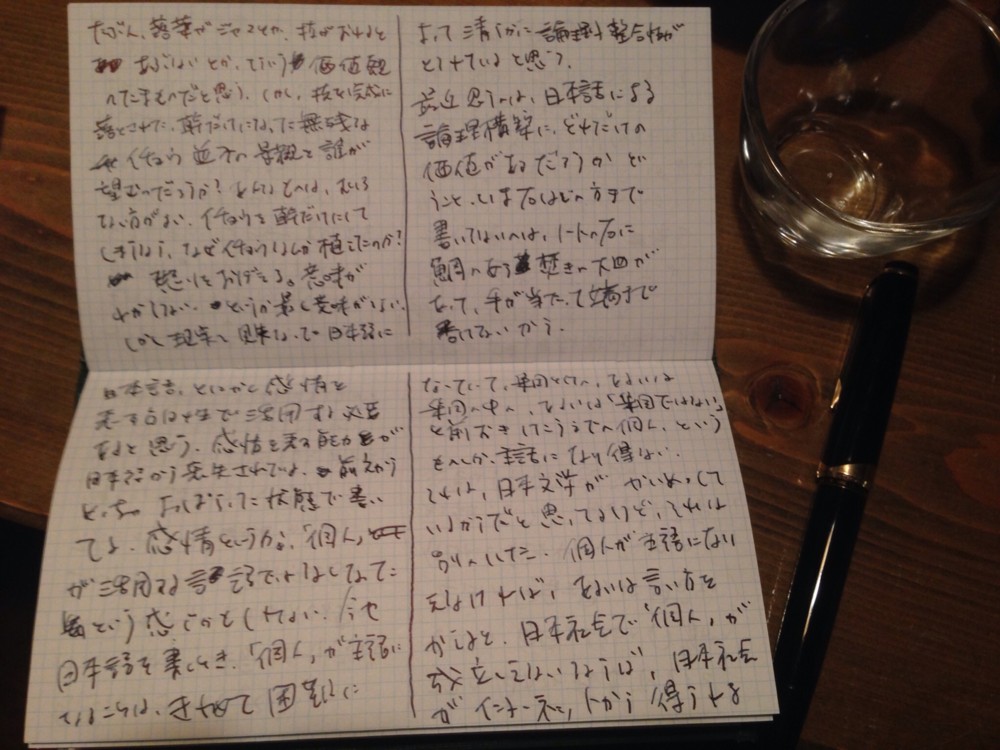 たぶん、落葉がジャマとか、枝がおれると
あぶないとか、そういう価値観
のたまものだと思う。しかし、枝を完全に
落とされた、幹だけになった無残な
イチョウ並木の景観を誰が
望むのだろうか?
ない方がよい。イチョウを幹だけにして
しまうなら、なぜイチョウなんか植えたのか?
意味が
わからない。というか、意味がない。
しかし現実
日本語に
よって
論理的整合性が
とれていると思う。
最近思うのは、日本語による
論理構築に、どれだけの
価値があるだろうかと
いうこと。いま右はじの方まで
書いてないのは、ノートの右に
鯛のあら焚きの大皿が
あって、手が当たって端まで
書けないから。
日本語、とにかく感情を
表す方法
まで活用する必要
あると思う。感情を表す能力が
日本語から喪失されてるよ。前から
だっけ。よっぱらった状態で書い
てる。感情というか、「個人」
が活用する言語ではなくなってた
という感じかもしれない。今や
日本語を書くとき、「個人」が主語に
なることは、きわめて困難に
なっていて、集団としての、あるいは
集団の中の、あるいは「集団ではない」
と前おきしたうえでの個人、という
ものしか、主語になり得ない。
それは、日本文学が
いるからだと思ってるけど、それは
別のはなし。個人が主語になり
えなければ、あるいは言い方を
かえると、日本社会で「個人」が
成立しえないならば、日本社会
がインターネットから得られる